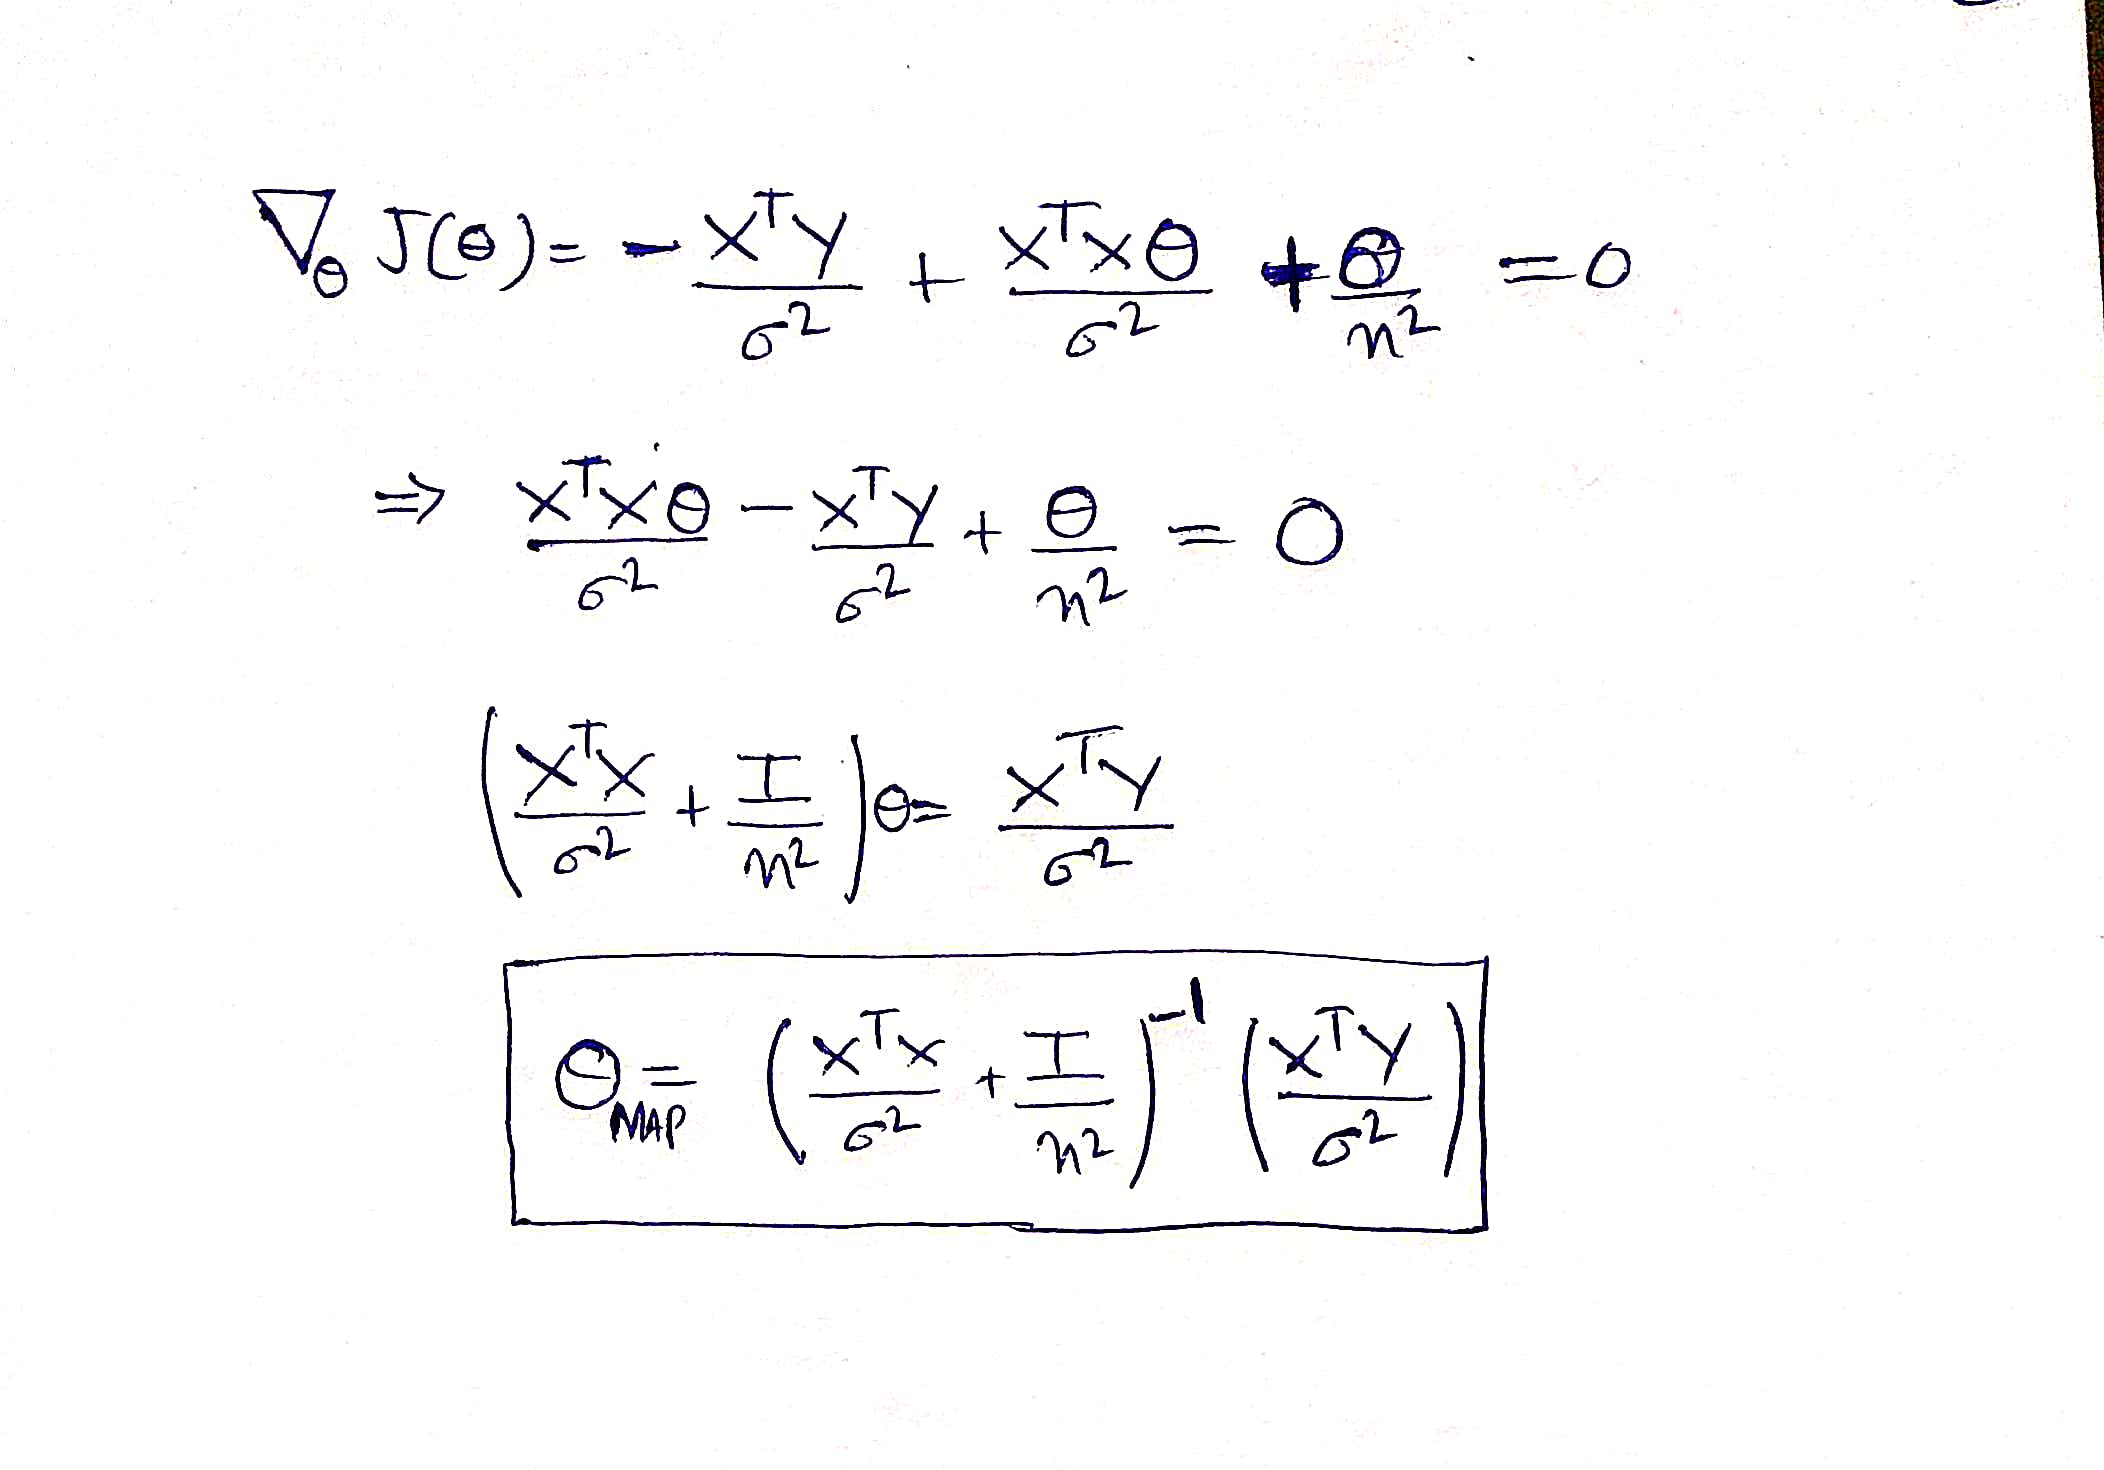 ∇_θ J(θ) = - XᵀY/σ² + XᵀXθ/σ² + θ/η² = 0
⇒ XᵀXθ/σ² - XᵀY/σ² + θ/η² = 0
(XᵀX/σ² + I/η²)θ = XᵀY/σ²
θ_MAP = (XᵀX/σ² + I/η²)⁻¹ (XᵀY/σ²)